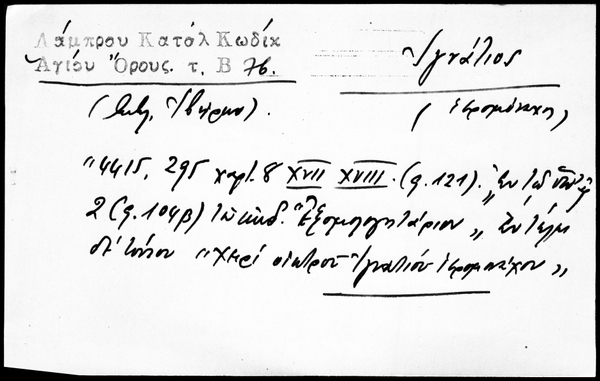 Λάμπρου Κατάλ Κωδίκ
Ἁγίου Ὄρους. τ. Β 76.
Ἰγνάτιος
(Ἱερομόναχος)
"4415, 295 χαρτ. 8 XVII XVIII. (φ. 121). "Ἐν τῷ
2 (φ. 104β) τοῦ κώδ. "Ἐξομολογητάριον" Ἐν τέλει
δὲ τούτου "Χειρὶ οἰκτροῦ Ἰγνατίου Ἱερομονάχου"